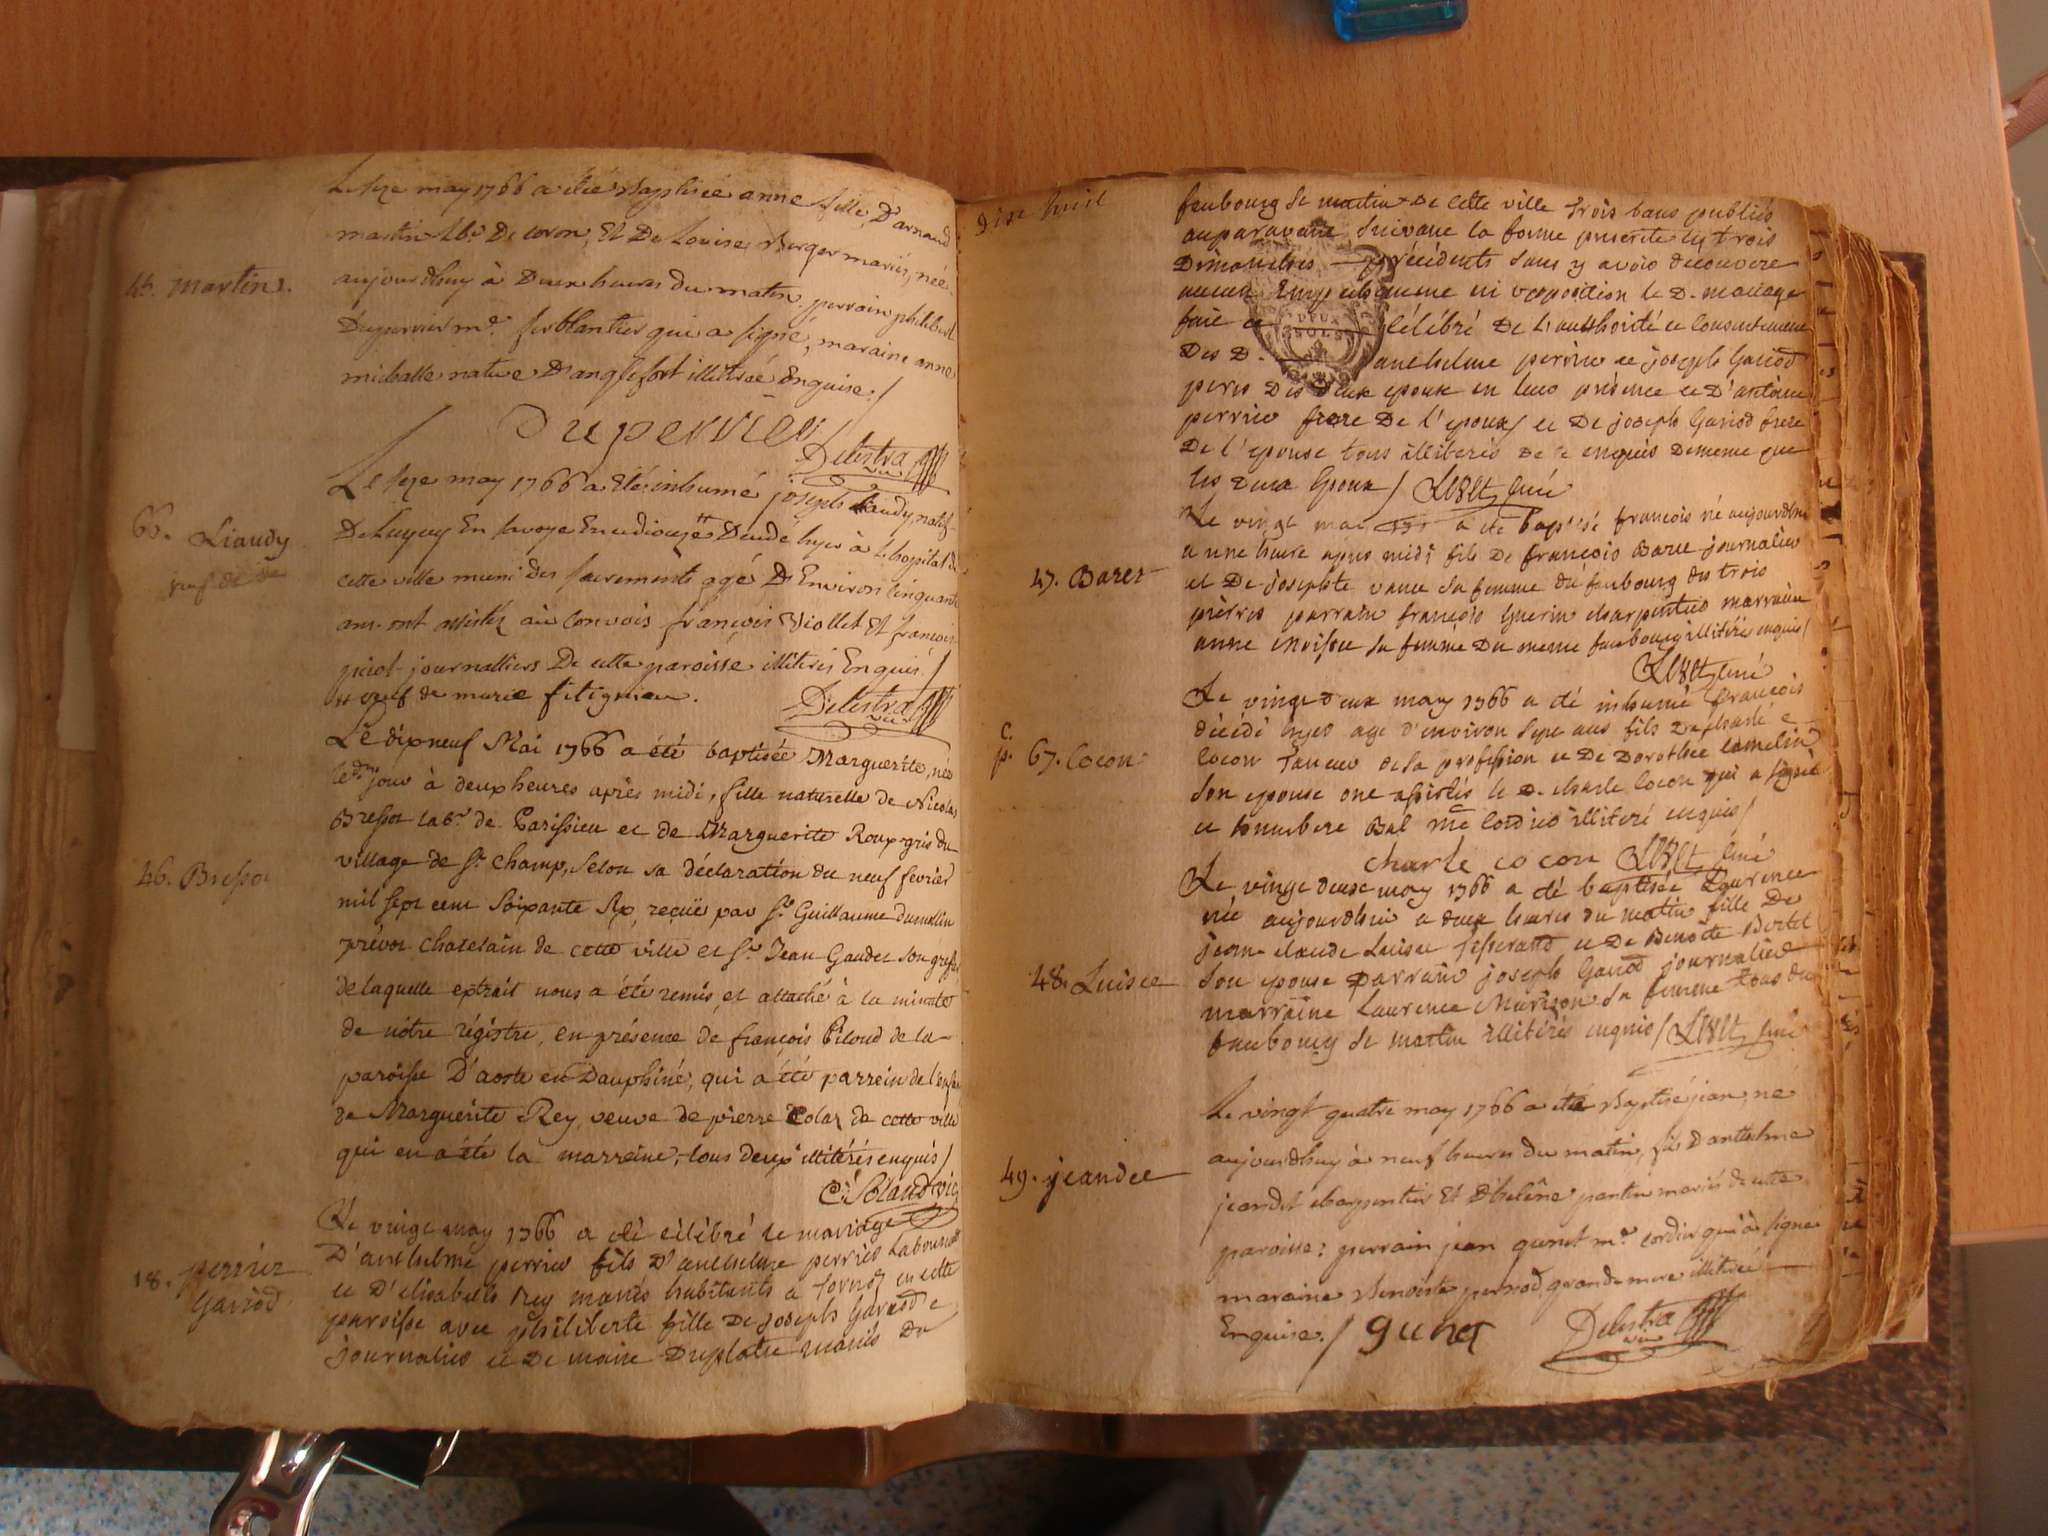 45. martin.
Le seze may 1766 a étée Baptisée anne fille D'arnaud
martin lbr. De coron, Et De Louise Berger mariés, née
aujourdhuy à Deux heures du matin. perrain philibert
Dupervier me. ferblantier qui a signé, maraine anne
michalle native D'anglefort illitrée Enquise /
Dupervier
Delestra vic.
66. Liaudy
Le seze may 1766 a été inhumé joseph Liaudy, natif
De lucey En savoye Decedé hyer à l'hopital de
cette ville muni des sacrements agé D'Environ Cinquante
ans. ont assistez au Convois françois Viollet Et françois
journalliers De cette paroisse illiterés Enquis /
veuf de marie fitignieu.
Delestra vic.
46. Bressot
Le dixneuf Mai 1766 a été baptisée Marguerite, née
le dt. jour à deux heures après midi, fille naturelle de Nicolas
Bressot labr. de Parissieu et de Marguerite Roupgris du
village de St. Champ, selon sa déclaration du neuf fevrier
mil sept cent soixante six, reçuë par Sr. Guillaume dumolin
prévot chatelain de cette ville et Sr. Jean Gaudet son greffier
de laquelle extrait nous a été remis, et attaché à la minute
de nôtre régistre, en présence de françois Piloud de la
paroisse D'aoste en Dauphiné, qui a été parrein de l'enfant
de Marguerite Rey, veuve de pierre Colaz de cette ville
qui en a été la marreine, tous deux illitérés enquis /
18. perrier
Gariod
Le vingt may 1766 a été célébré le mariage
D'anthelme perrier fils D'anthelme perrier Laboureur
et D'elisabeth Rey mariés habitants a en cette
paroisse avec philiberte fille De joseph Gariod
journalier et De marie Duplatre mariés du
dixe huit
faubourg St martin De cette ville trois bans publiés
auparavant suivant la forme prescrite les trois
Dimanches précédents sans y avoir découvert
aucun Empechement ni opposition le D. mariage
fait et célébré De l'authorité et consentement
Des D. anthelme perrier et joseph Gariod
peres Des deux epoux en leur présence et D'antoine
perrier frere De l'epoux et De joseph Gariod frere
De l'epouse tous illiterés De ce enquis Demême que
les deux Epoux / Curé
47. Baret
Le vingt mai a été baptisé françois né aujourdhui
a une heure apres midi fils De françois Baret journalier
et De josephte sa femme du faubourg des trois
pierres parrain françois Guerin charpentier marraine
anne sa femme Du meme faubourg illitérés enquis /
Curé
C.
p. 67. Cocon
Le vingt deux may 1766 a été inhumé françois
décédé hyer agé d'environ sept ans fils De charle
Cocon Tanneur de sa profession et De Dorothée Camelin
son epouse ont assistés le D. charle Cocon qui a signé
et Bal me cordier illiteré enquis /
charle cocon Curé
48. Luiset
Le vingt deux may 1766 a été baptisée Laurence
née aujourdhui a deux heures du matin fille De
jean claude Luiset Tisserand et De Benoite Bertet
son epouse parrain joseph Gariod journalier
marraine Laurence sa femme tous du
faubourg St martin illitérés enquis / Curé
49. jeandet
Le vingt quatre may 1766 a été Baptisé jean, né
aujourdhuy à neuf heures du matin, fils D'anthelme
jeandet charpentier Et D'helêne pantin mariés de cette
paroisse: perrain jean gunet me. cordier qui a signé
maraine Benoite pernod grande mere illiterée
Enquise. / gunet
Delestra vic.